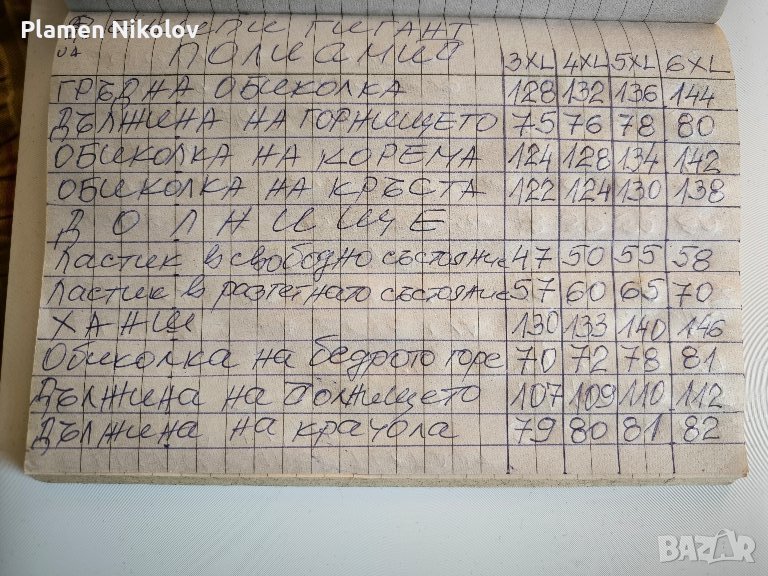 Plamen Nikolov
ГИГАНТ
ПОЛИАМИД 3XL 4XL 5XL 6XL
ГРЪДНА ОБИКОЛКА 128 132 136 144
ДЪЛЖИНА НА ГОРНИЩЕТО 75 76 78 80
ОБИКОЛКА НА КОРЕМА 124 128 134 142
ОБИКОЛКА НА КРЪСТА 122 124 130 138
ДОЛНИЩЕ
Ластик в свободно състояние 47 50 55 58
Ластик в разтегнато състояние 57 60 65 70
ХАНШ 130 133 140 146
Обиколка на бедрото горе 70 72 78 81
Дължина на долнището 107 109 110 112
Дължина на крачола 79 80 81 82
BAZAR